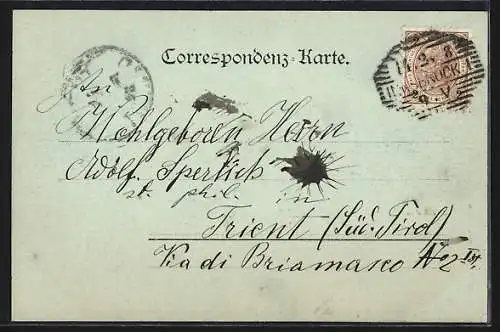 Correspondenz-Karte.
An
Wohlgeboren Herrn
Adolf Sperlich
st. phil. in
Trient (Süd-Tirol)
Via di Briamasco No 2 Ist.